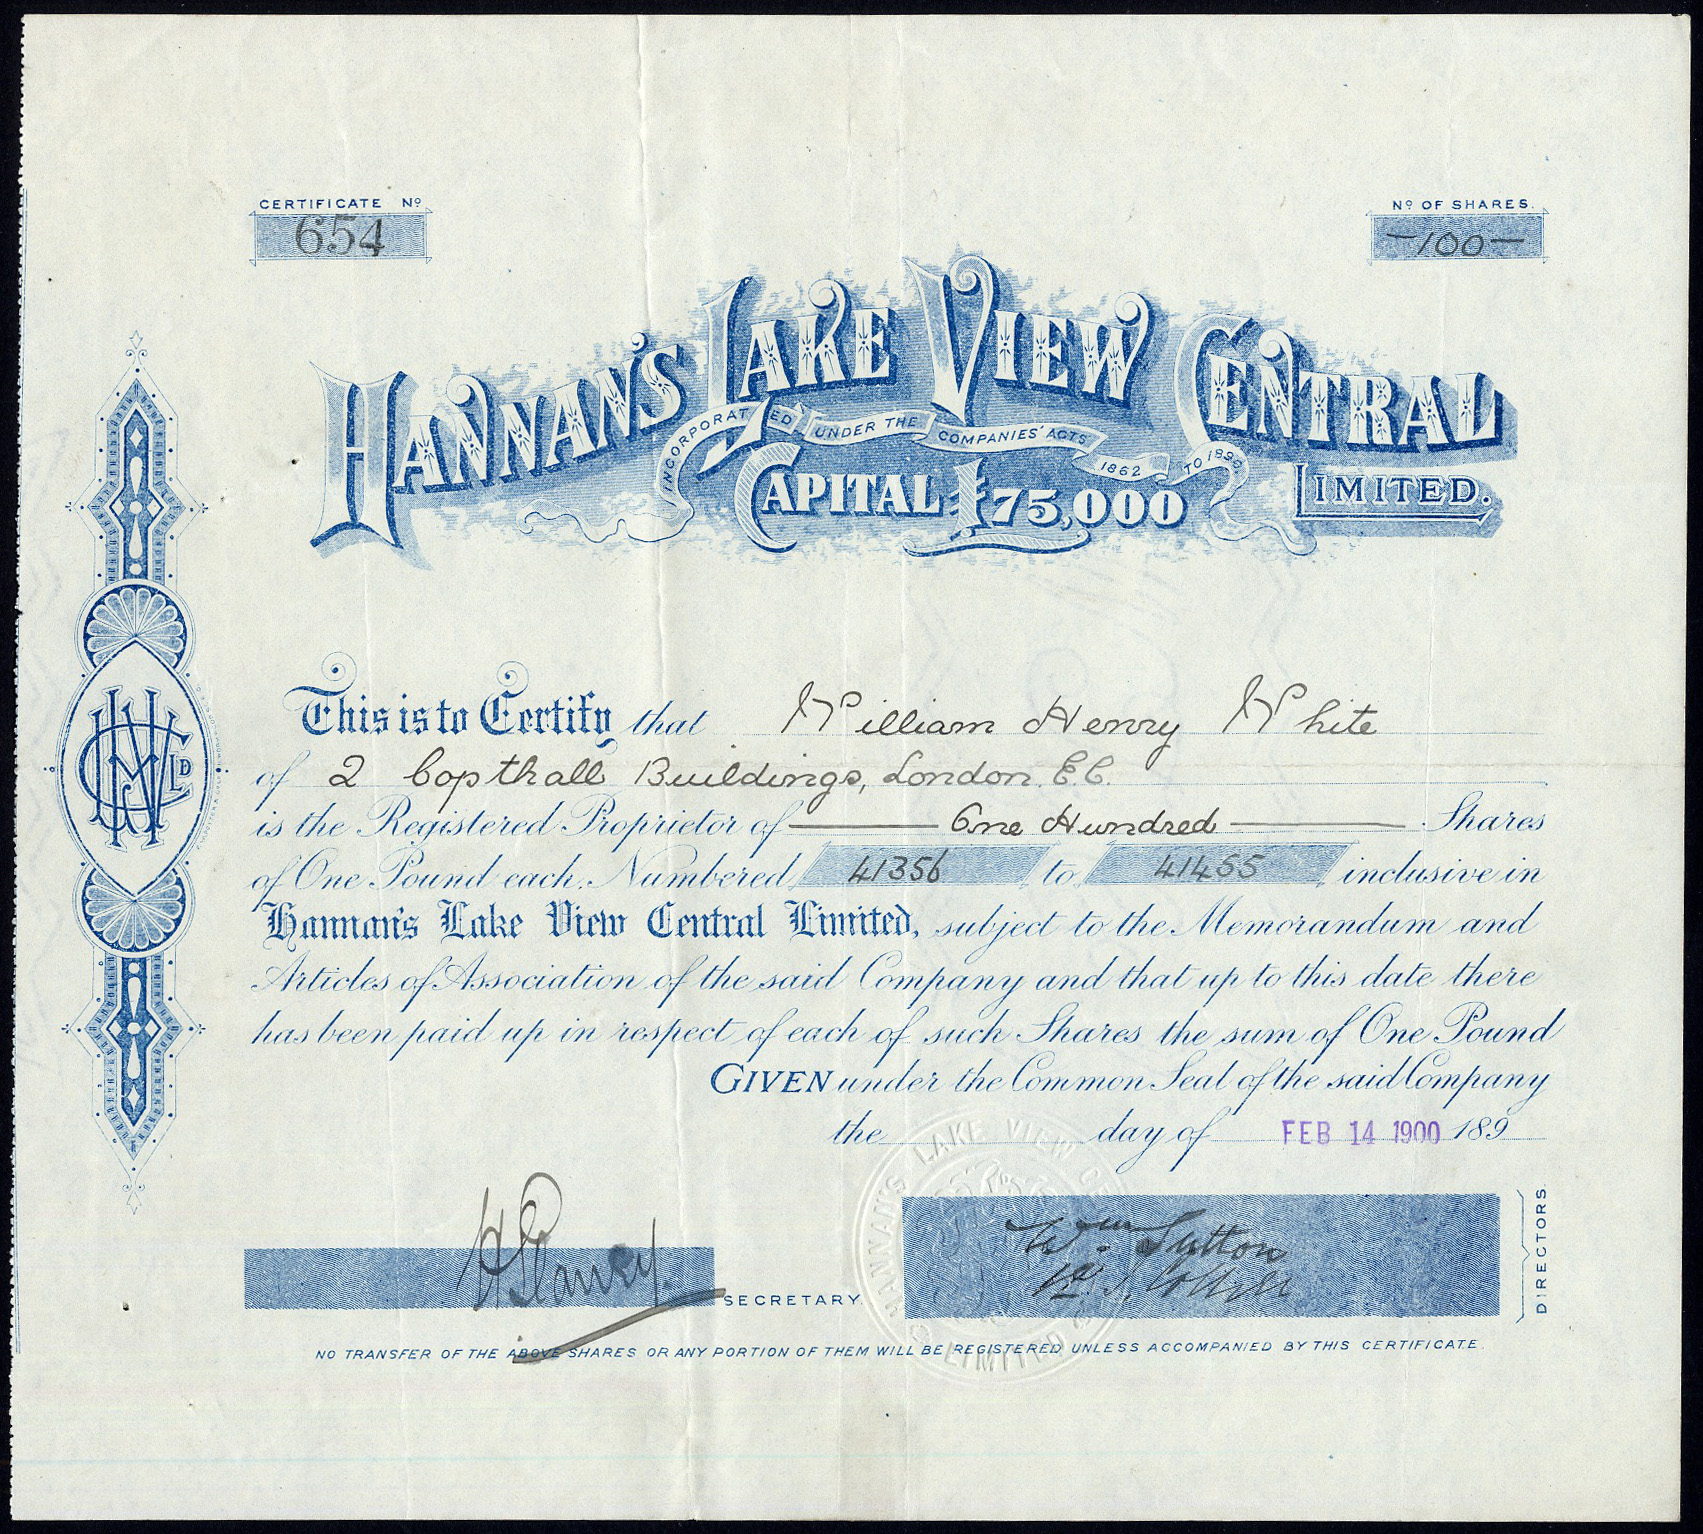 CERTIFICATE Nº
654
Nº OF SHARES.
—100—
HANNAN'S LAKE VIEW CENTRAL
INCORPORATED UNDER THE COMPANIES' ACTS 1862 TO 1890
CAPITAL £75,000
LIMITED.
This is to Certify that William Henry White
of 2 Copthall Buildings, London. E.C.
is the Registered Proprietor of — One Hundred — Shares
of One Pound each. Numbered 41356 to 41455 inclusive in
Hannan's Lake View Central Limited, subject to the Memorandum and
Articles of Association of the said Company and that up to this date there
has been paid up in respect of each of such Shares the sum of One Pound
GIVEN under the Common Seal of the said Company
the day of FEB 14 1900 189
HANNAN'S LAKE VIEW CENTRAL LIMITED
Wm. Sutton
DIRECTORS.
SECRETARY.
NO TRANSFER OF THE ABOVE SHARES OR ANY PORTION OF THEM WILL BE REGISTERED UNLESS ACCOMPANIED BY THIS CERTIFICATE.